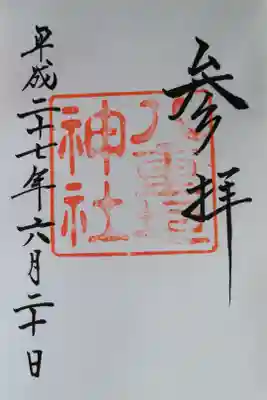 参拝
八重垣
神社
平成二十七年六月二十日